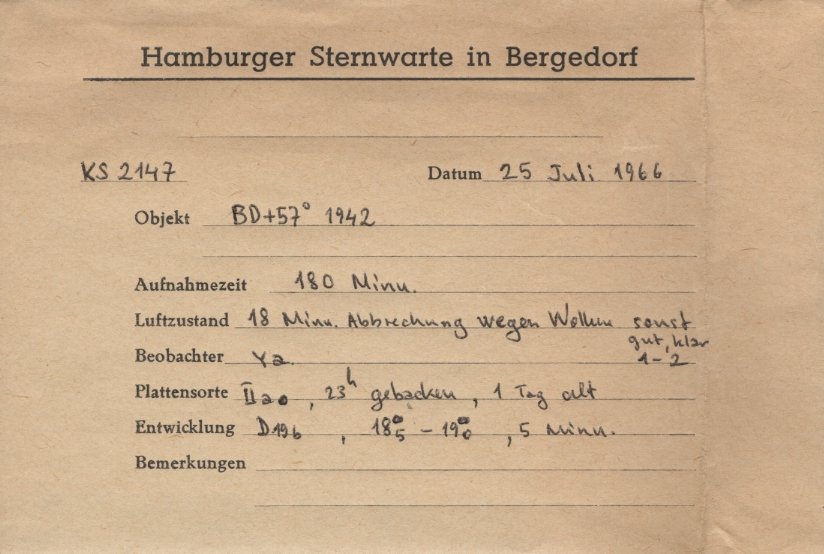 Hamburger Sternwarte in Bergedorf
KS 2147 Datum 25 Juli 1966
Objekt BD+57° 1942
Aufnahmezeit 180 Minu.
Luftzustand 18 Minu. Abbrechung wegen Wolken sonst
gut, klar
Beobachter Ya. 1-2
Plattensorte IIao, 23h gebacken, 1 Tag alt
Entwicklung D19b, , 5 Minu.
Bemerkungen